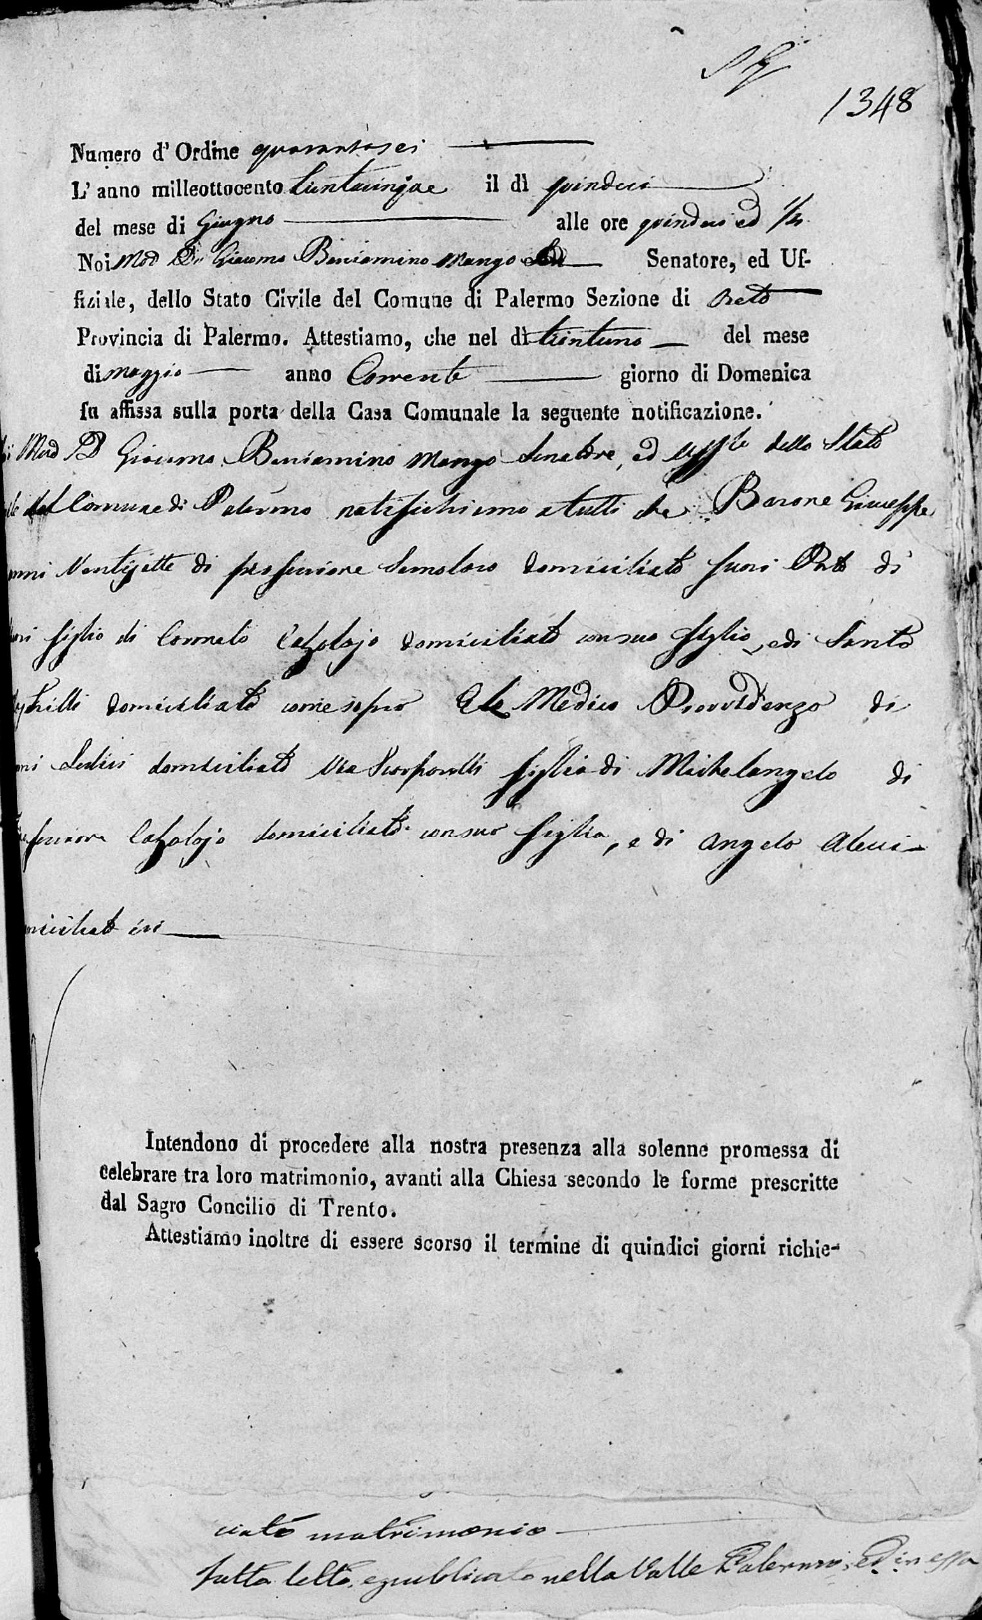 1348
Numero d' Ordine quarantasei
L' anno milleottocento trentacinque il dì quindici
del mese di Giugno alle ore quindici ed 1/2
Noi Mod D. Giacomo Beniamino Mango Senatore, ed Uf-
fiziale, dello Stato Civile del Comune di Palermo Sezione di Oreto
Provincia di Palermo. Attestiamo, che nel dì trentuno del mese
di maggio anno Corrente giorno di Domenica
fu affissa sulla porta della Casa Comunale la seguente notificazione.
Mod D Giacomo Beniamino Mango Senatore, ed dello Stato
del Comune di Palermo notifichiamo a tutti che Barone Giuseppe
anni Ventisette di professione domiciliato fuori Porta di
figlio di Calzolajo domiciliato con suo figlio, e di Santa
domiciliata come sopra e Lo Medico Providenza di
anni Sedici domiciliata Via figlia di Michelangelo di
professione Calzolajo domiciliato con sua figlia, e di Angela Alessi
domiciliata ivi
Intendono di procedere alla nostra presenza alla solenne promessa di
celebrare tra loro matrimonio, avanti alla Chiesa secondo le forme prescritte
dal Sagro Concilio di Trento.
Attestiamo inoltre di essere scorso il termine di quindici giorni richie-
ciato matrimonio
fatta letta, e pubblicata nella Valle Palermo, ed in essa